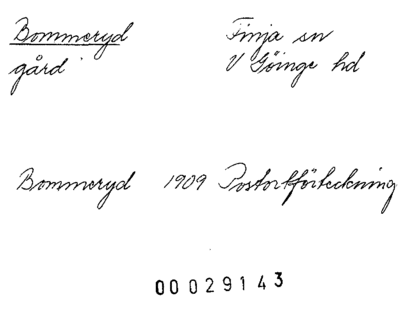 Bommeryd Finja sn
gård V Göinge hd
Bommeryd 1909 Postortförteckning
00029143